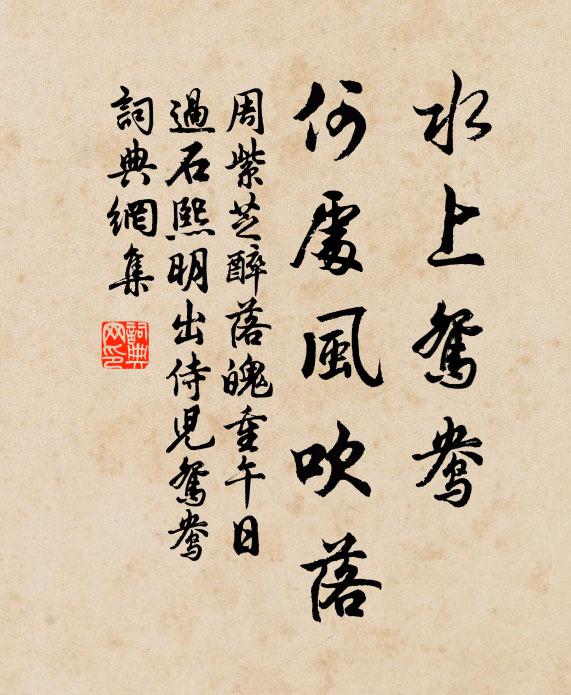 水上鴛鴦
何處風吹落
周紫芝醉落魄重午日
過石熙明出侍兒鴛鴦
詞典網集
詞典
网印